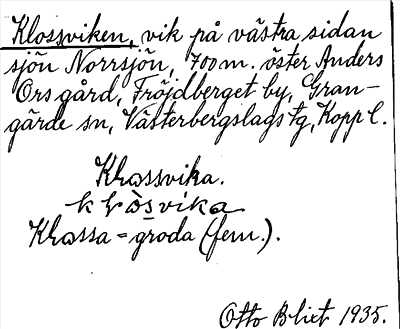 Klossviken, vik på västra sidan
sjön Norrsjön, 700 m. öster Anders
Ors gård, Fröjdberget by, Gran-
gärde sn, Västerbergslags tg, Kopp l.
Kłossvika.
Kłossa = groda (fem.).
Otto Blixt 1935.